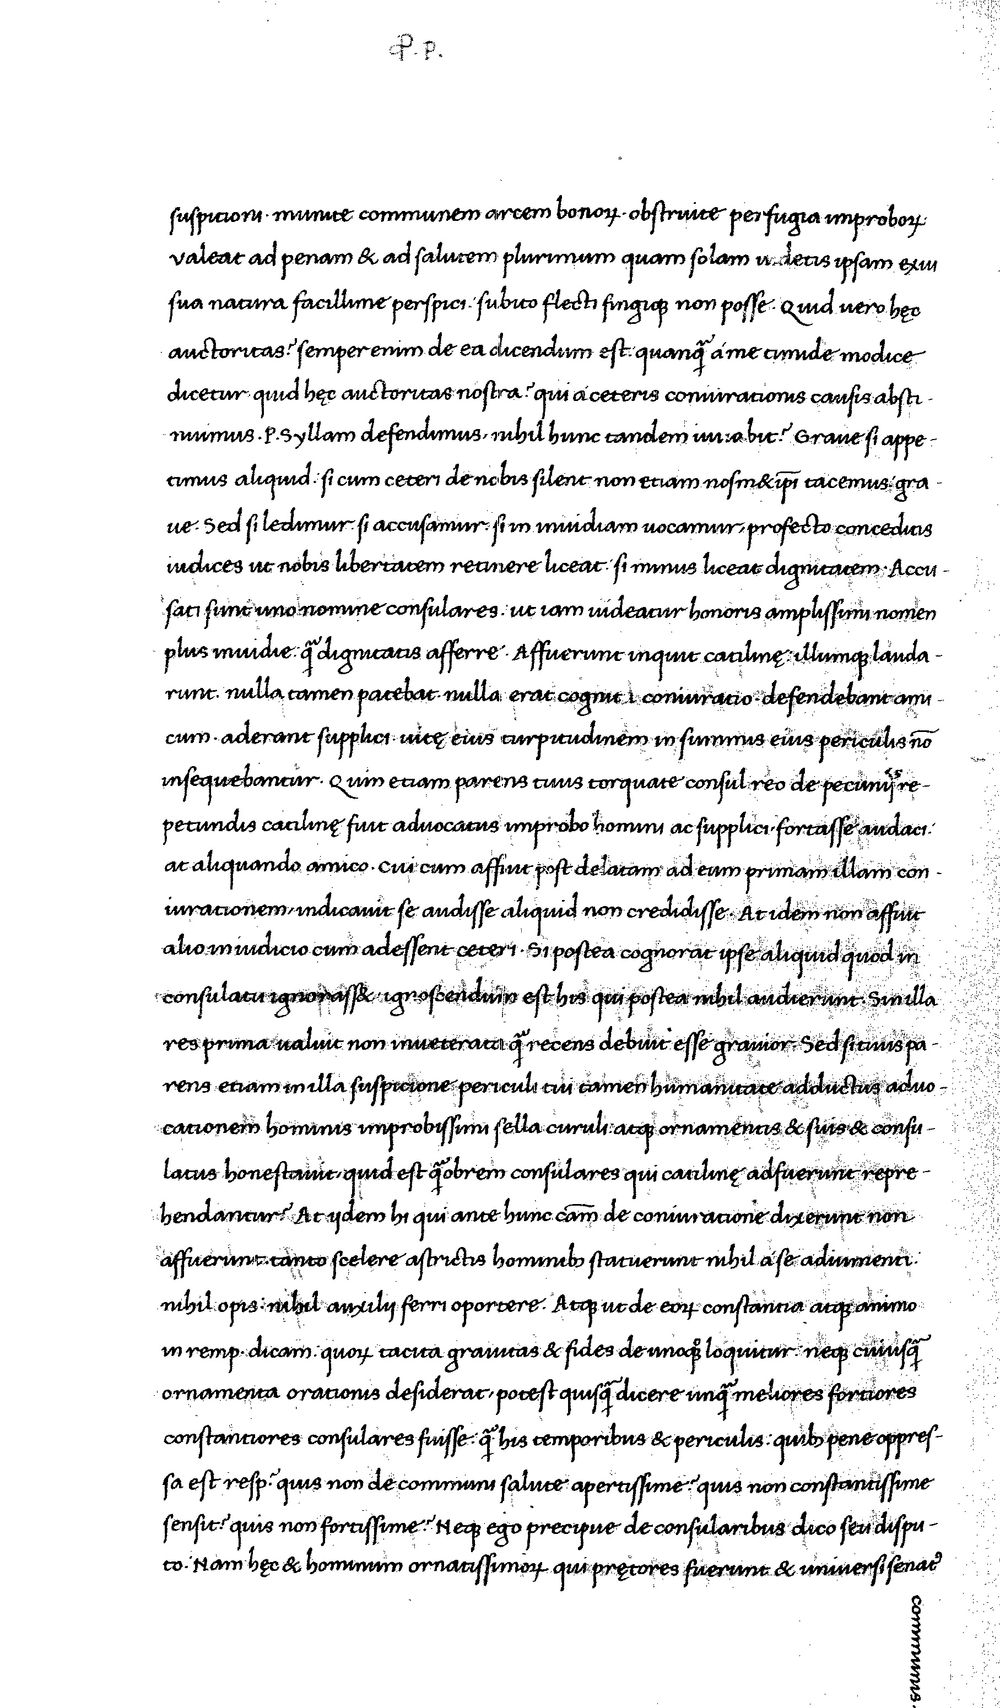 P. P.
suspitioni. munite communem arcem bonoꝝ. obstruite perfugia improboꝝ
valeat ad penam & ad salutem plurimum quam solam uidetis ipsam exui
sua natura facillime perspici. subito flecti fingiqꝫ non posse. Quid uero hęc
auctoritas? semper enim de ea dicendum est. quanq̃ a me timide modice
dicetur quid hęc auctoritas nostra? qui a ceteris coniurationis causis absti-
nuimus. P. Syllam defendimus, nihil hunc tandem iuuabit? Graue si appe-
timus aliquid. si cum ceteri de nobis silent non etiam nosm& ip̃i tacemus. gra-
ue. Sed si ledimur si accusamur. si in inuidiam uocamur, profecto conceditis
iudices ut nobis libertatem retinere liceat. si minus liceat dignitatem. Accu-
sati sunt uno nomine consulares. ut iam uideatur honoris amplissimi nomen
plus inuidie. q̃ dignitatis afferre. Affuerunt inquit catilinę. illumqꝫ lauda-
runt. nulla tamen patebat. nulla erat cognita coniuratio. defendebant ami-
cum. aderant supplici. uitę eius turpitudinem in summis eius periculis nō
insequebantur. Quin etiam parens tuus torquate consul reo de pecunijs re-
petundis catilinę fuit aduocatus improbo homini ac supplici. fortasse audaci.
at aliquando amico. Cui cum affuit post delatam ad eum primam illam con-
iurationem, indicauit se audisse aliquid non credidisse. At idem non affuit
alio in iudicio cum adessent ceteri. Si postea cognorat ipse aliquid quod in
consulatu ignorass&. ignoscendum est his qui postea nihil audierunt. Sin illa
res prima ualuit non inueterata q̃ recens debuit esse grauior. Sed si tuus pa-
rens etiam in illa suspicione periculi tui tamen humanitate adductus aduo-
cationem hominis improbissimi sella curuli atqꝫ ornamentis & suis & consu-
latus honestauit, quid est q̃obrem consulares qui catilinę adfuerunt repre-
hendantur? At ijdem hi qui ante hunc cām de coniuratione dixerunt non
affuerunt. tanto scelere astrictis hominibꝫ statuerunt nihil a se adiumenti.
nihil opis. nihil auxilij ferri oportere. Atqꝫ ut de eoꝝ constantia atqꝫ animo
in remp. dicam. quoꝝ tacita grauitas & fides de unoqꝫ loquitur. neqꝫ cuiusq̃
ornamenta orationis desiderat, potest quisq̃ dicere unq̃ meliores fortiores
constantiores consulares fuisse. q̃ his temporibus & periculis. quibꝫ pene oppres-
sa est resp. quis non de communi salute apertissime? quis non constantissime
sensit? quis non fortissime? Neqꝫ ego precipue de consularibus dico seu dispu-
to. Nam hęc & hominum ornatissimoꝝ qui prętores fuerunt & uniuersi senat᾿
communis.